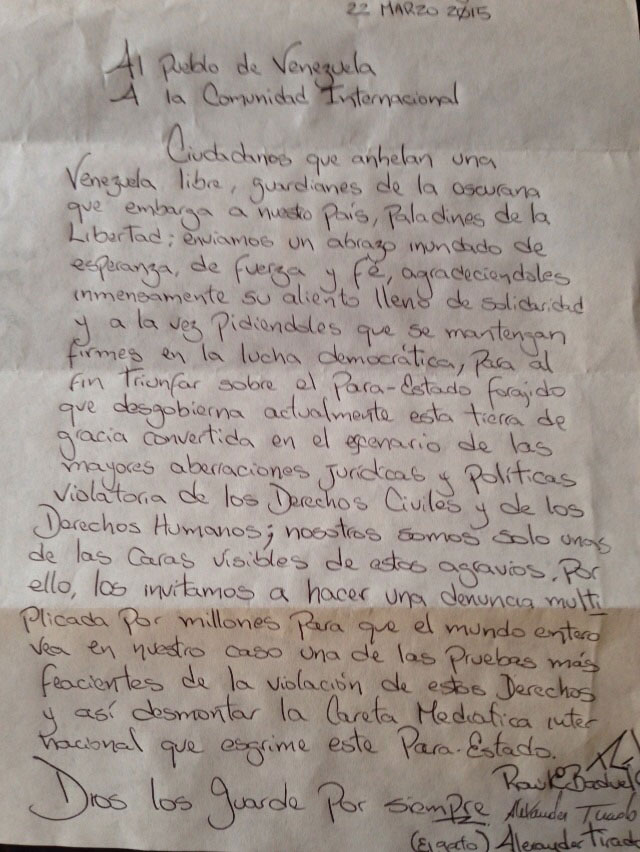 22 MARZO 2015
Al Pueblo de Venezuela
A la Comunidad Internacional
Ciudadanos que anhelan una
Venezuela libre, guardianes de la oscurana
que embarga a nuesto País, Paladines de la
Libertad; enviamos un abrazo inundado de
esperanza, de fuerza y fé, agradeciendoles
inmensamente su aliento lleno de solidaridad
y a la vez Pidiendoles que se mantengan
firmes en la lucha democrática, para al
fin Triunfar sobre el Para-Estado forajido
que desgobierna actualmente esta tierra de
gracia convertida en el escenario de las
mayores aberraciones jurídicas y Políticas
Violatoria de los Derechos Civiles y de los
Derechos Humanos; nosotros somos solo unas
de las Caras visibles de estos agravios. Por
ello, los invitamos a hacer una denuncia multi
Plicada Por millones Para que el mundo entero
Vea en nuestro caso una de las Pruebas más
feacientes de la violación de estos Derechos
y así desmontar la Careta Mediática inter
nacional que esgrime este Para-Estado.
Dios los guarde Por siempre
Alexander Tirado
(El gato) Alexander Tirado